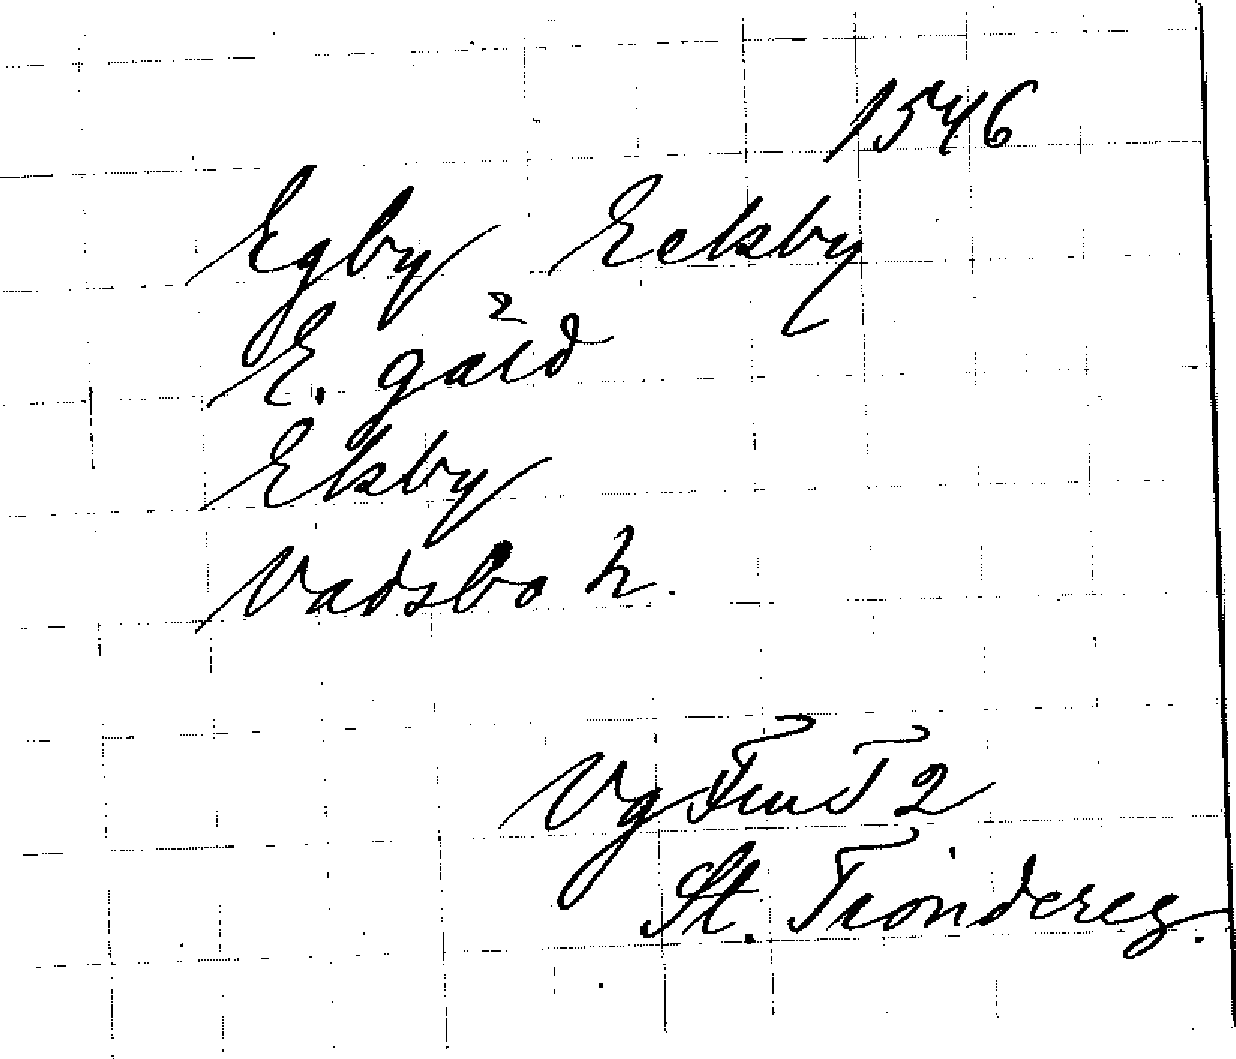 1546
Egby Eckby
E. gäld
Ekby
Vadsbo h.
Vg T 2
St. Tiondereg.